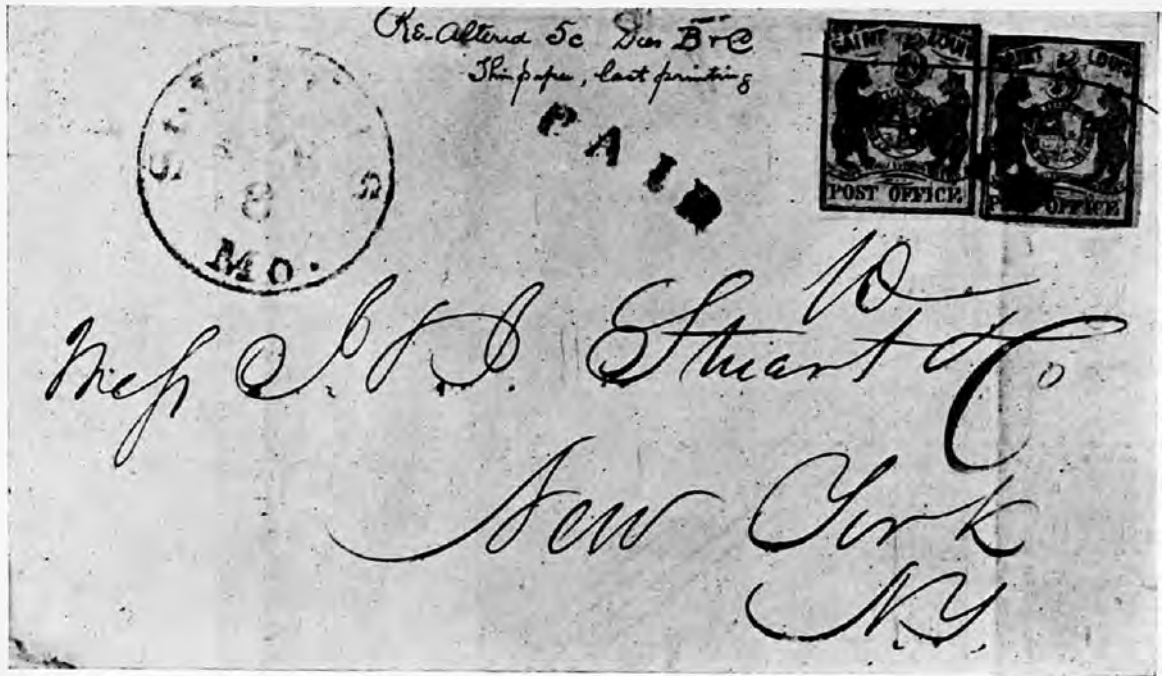 Re-altered 5c Dies B & C
Thin paper, last printing
SAINT LOUIS
5
POST OFFICE
SAINT LOUIS
5
POST OFFICE
PAID
8
Mo.
10
Mess J. & J. Stuart & Co
New York
N.Y.